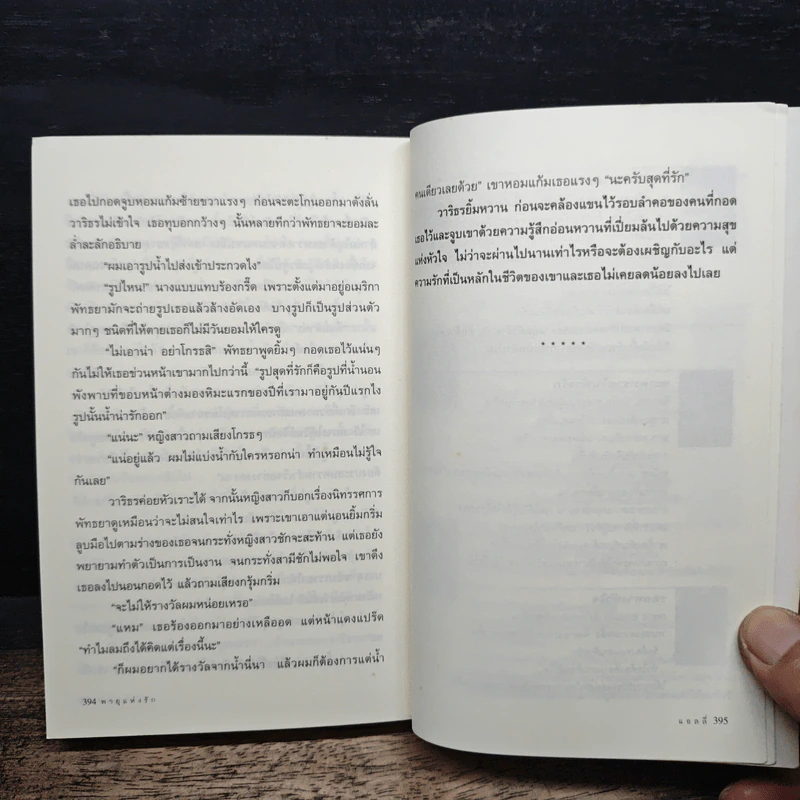 เธอไปกอดจูบหอมแก้มซ้ายขวาแรงๆ ก่อนจะตะโกนออกมาดังลั่น
วาริธรไม่เข้าใจ เธอทุบอกกว้างๆ นั้นหลายทีกว่าพัทธยาจะยอมละ
ล่ำละลักอธิบาย
“ผมเอารูปน้ำไปส่งเข้าประกวดไง”
“รูปไหน!” นางแบบแทบร้องกรี๊ด เพราะตั้งแต่มาอยู่อเมริกา
พัทธยามักจะถ่ายรูปเธอแล้วล้างอัดเอง บางรูปก็เป็นรูปส่วนตัว
มากๆ ชนิดที่ให้ตายเธอก็ไม่มีวันยอมให้ใครดู
“ไม่เอาน่า อย่าโกรธสิ” พัทธยาพูดยิ้มๆ กอดเธอไว้แน่นๆ
กันไม่ให้เธอข่วนหน้าเขามากไปกว่านี้ “รูปสุดที่รักก็คือรูปที่น้ำนอน
พังพาบที่ขอบหน้าต่างมองหิมะแรกของปีที่เรามาอยู่กันปีแรกไง
รูปนั้นน้ำน่ารักออก”
“แน่นะ” หญิงสาวถามเสียงโกรธๆ
“แน่อยู่แล้ว ผมไม่แบ่งน้ำกับใครหรอกน่า ทำเหมือนไม่รู้ใจ
กันเลย”
วาริธรค่อยหัวเราะได้ จากนั้นหญิงสาวก็บอกเรื่องนิทรรศการ
พัทธยาดูเหมือนว่าจะไม่สนใจเท่าไร เพราะเขาเอาแต่นอนยิ้มกริ่ม
ลูบมือไปตามร่างของเธอจนกระทั่งหญิงสาวชักจะสะท้าน แต่เธอยัง
พยายามทำตัวเป็นการเป็นงาน จนกระทั่งสามีชักไม่พอใจ เขาดึง
เธอลงไปนอนกอดไว้ แล้วถามเสียงกรุ้มกริ่ม
“จะไม่ให้รางวัลผมหน่อยเหรอ”
“แหม” เธอร้องออกมาอย่างเหลืออด แต่หน้าแดงแปร๊ด
“ทำไมลมถึงได้คิดแต่เรื่องนี้นะ”
“ก็ผมอยากได้รางวัลจากน้ำนี่นา แล้วผมก็ต้องการแต่น้ำ
394 พายุแห่งรัก
คนเดียวเลยด้วย” เขาหอมแก้มเธอแรงๆ “นะครับสุดที่รัก”
วาริธรยิ้มหวาน ก่อนจะคล้องแขนไว้รอบลำคอของคนที่กอด
เธอไว้และจูบเขาด้วยความรู้สึกอ่อนหวานที่เปี่ยมล้นไปด้วยความสุข
แห่งหัวใจ ไม่ว่าจะผ่านไปนานเท่าไรหรือจะต้องเผชิญกับอะไร แต่
ความรักที่เป็นหลักในชีวิตของเขาและเธอไม่เคยลดน้อยลงไปเลย
* * * * *
แอลลี่ 395